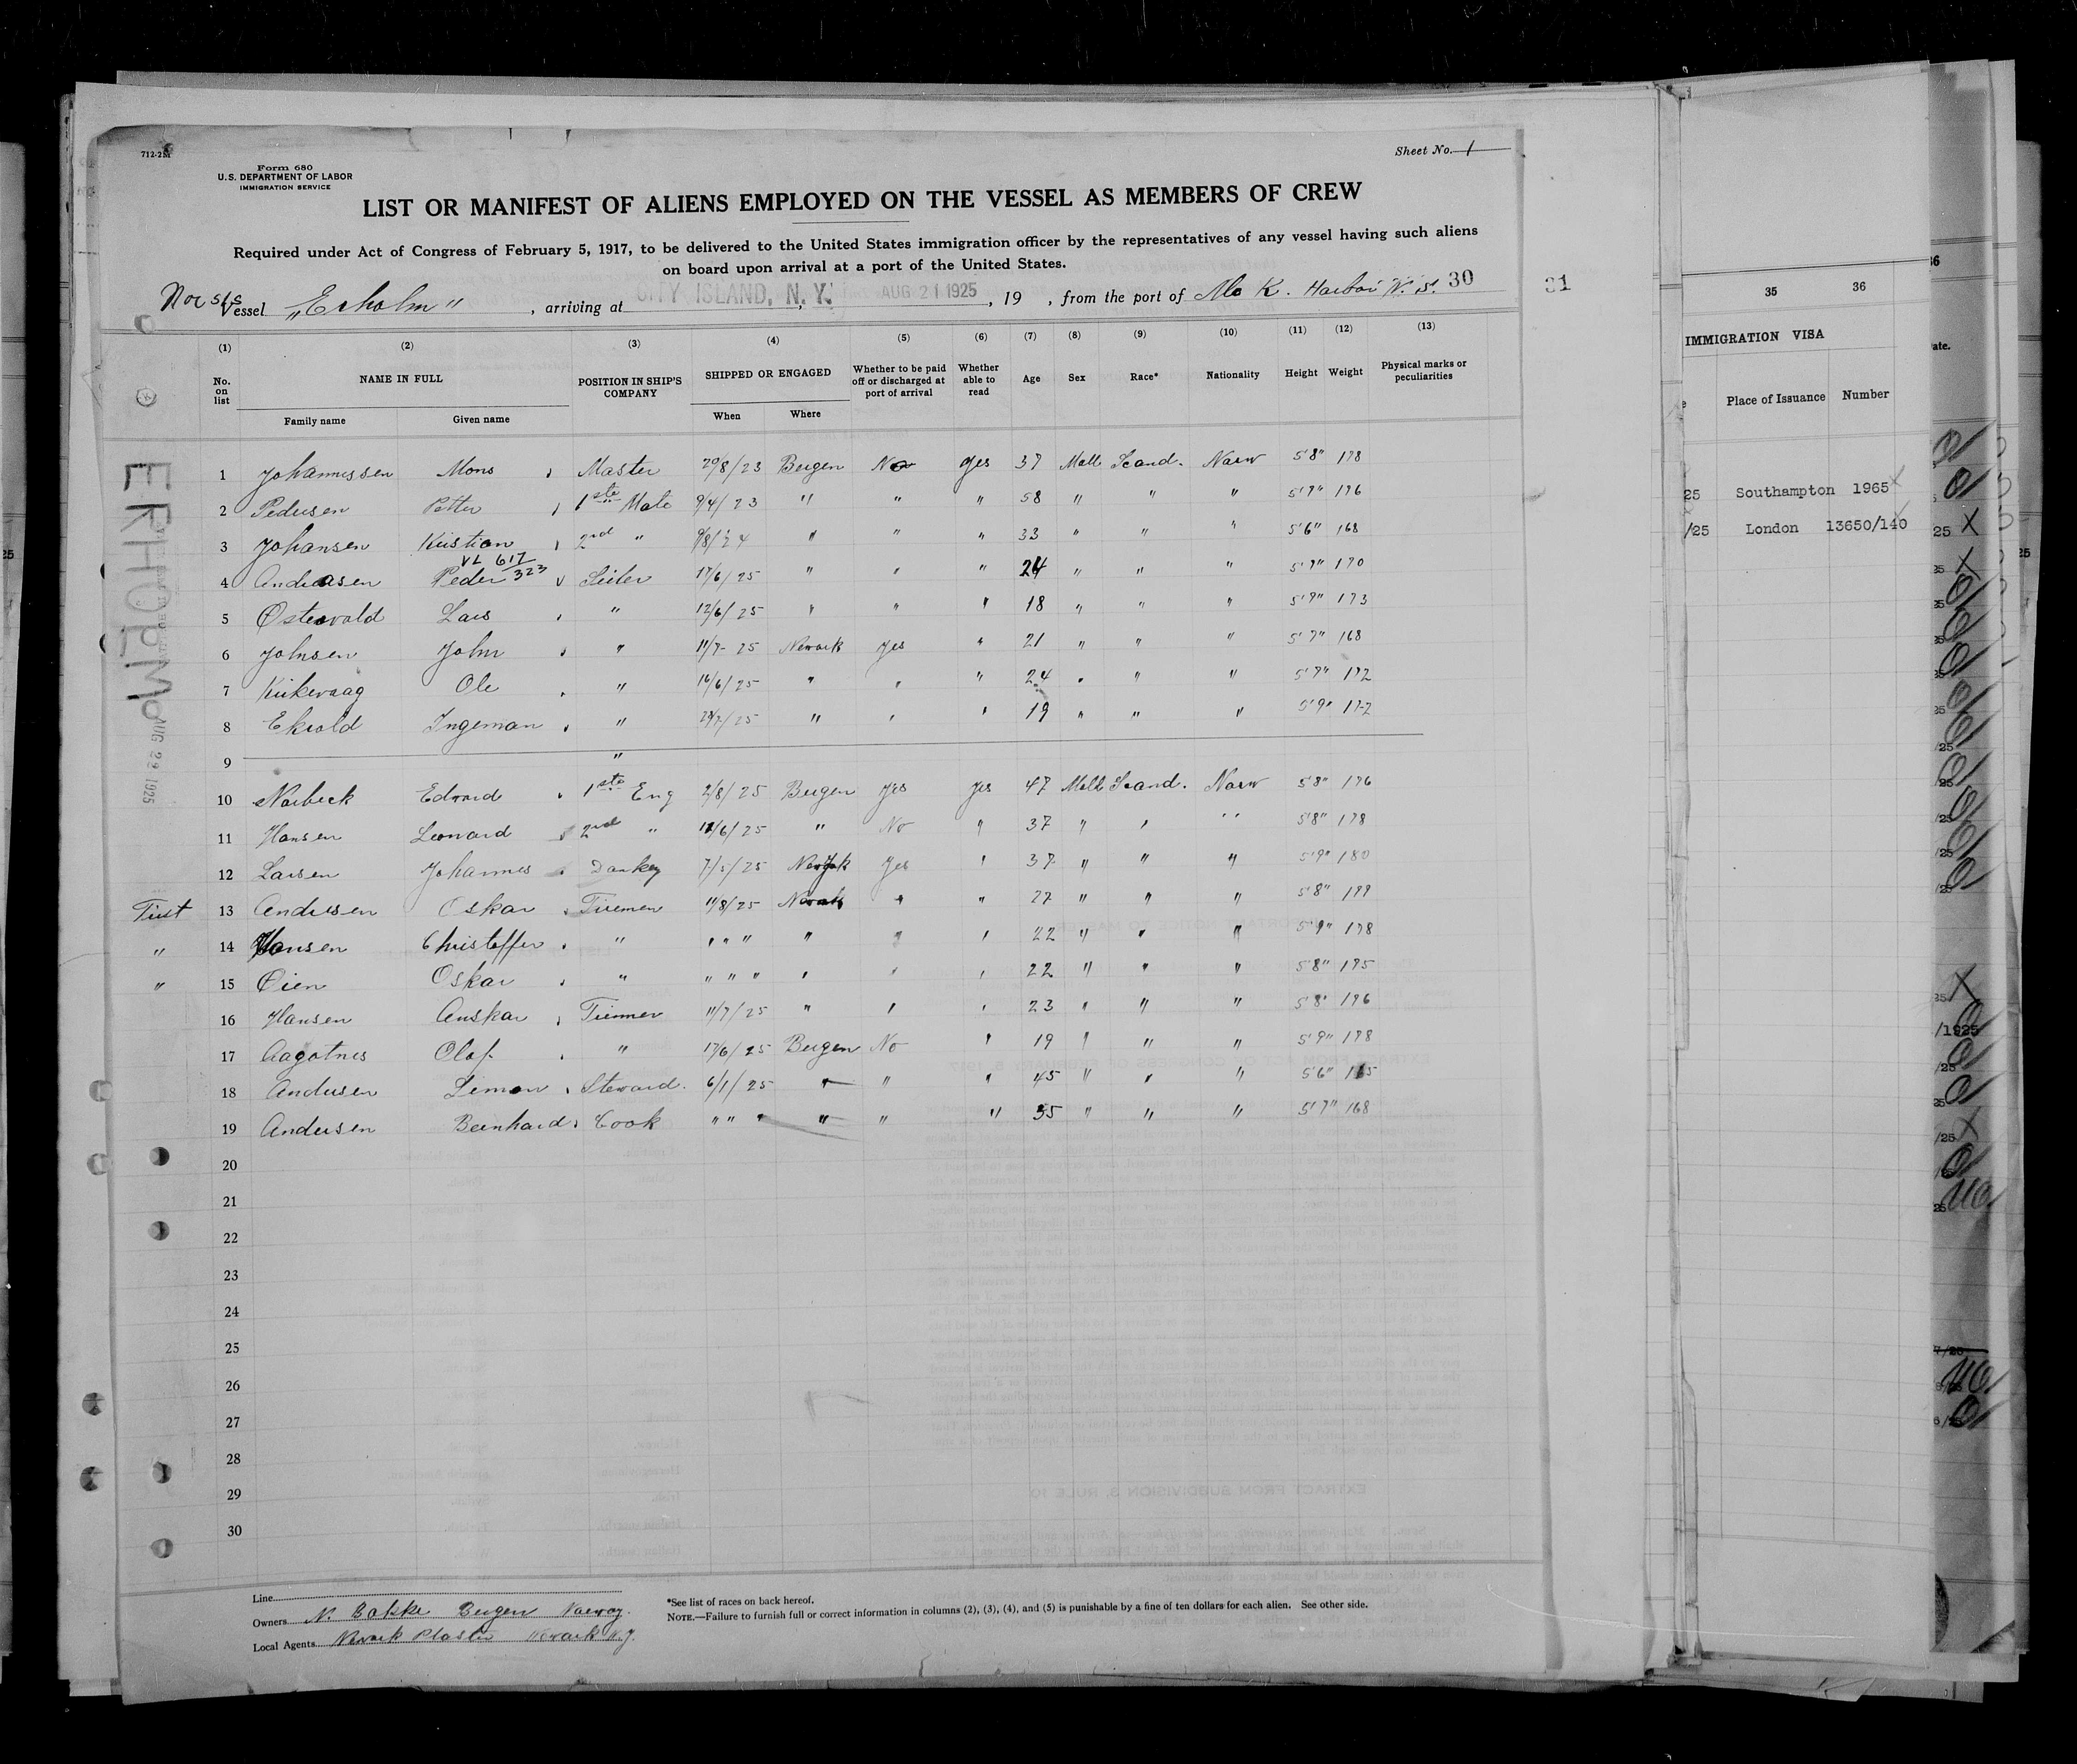 712-2M
Form 680
U.S. DEPARTMENT OF LABOR
IMMIGRATION SERVICE
Sheet No. 1
LIST OR MANIFEST OF ALIENS EMPLOYED ON THE VESSEL AS MEMBERS OF CREW
Required under Act of Congress of February 5, 1917, to be delivered to the United States immigration officer by the representatives of any vessel having such aliens
on board upon arrival at a port of the United States.
Nor s/s Vessel "Erholm", arriving at CITY ISLAND, N. Y. AUG 21 1925, 19 , from the port of Harbor N. S. 30
31
(1) (2) (3) (4) (5) (6) (7) (8) (9) (10) (11) (12) (13)
No. on list NAME IN FULL Family name Given name POSITION IN SHIP'S COMPANY SHIPPED OR ENGAGED When Where Whether to be paid off or discharged at port of arrival Whether able to read Age Sex Race* Nationality Height Weight Physical marks or peculiarities
1 Johannessen Mons Master 20/8/23 Bergen No Yes 37 Mall Scand. Norw 5'8" 178
2 Pedersen Petter 1ste Mate 9/4/23 " " " 58 " " " 5'7" 176
3 Johansen Kristian 2nd " " " " 33 " " " 5'6" 168
VL 617/323
4 Andreasen Peder 17/6/25 " " " 24 " " " 5'7" 170
5 Ostervold Lars " 12/6/25 " " " 18 " " " 5'9" 173
6 Johnsen John " 11/7-25 Newark Yes " 21 " " " 5'7" 168
7 Kirkevaag Ole " 16/6/25 " " " 24 " " " 5'7" 172
8 Ekvold Ingeman " " " " 19 " " " 5'9" 172
9 "
10 Norbeck Edward 1ste Eng 2/8/25 Bergen Yes Yes 47 Mall Scand. Norw 5'8" 176
11 Hansen Leonard 2nd " /6/25 " No " 37 " " " 5'8" 178
12 Larsen Johannes Donkey 7/5/25 New York Yes " 37 " " " 5'9" 180
First 13 Andersen Oskar Firemen 11/8/25 Newark " " 27 " " " 5'8" 179
" 14 Hansen Christoffer " " " " " " " 22 " " " 5'9" 178
" 15 Oien Oskar " " " " " " " 22 " " " 5'8" 175
16 Hansen Anskar Trimmer 11/7/25 " " " 23 " " " 5'8" 176
17 Aagotnes Olaf " 17/6/25 Bergen No " 19 " " " 5'9" 178
18 Andersen Simon Steward. 6/1/25 " " " 45 " " " 5'6"
19 Andersen Bernhard Cook " " " " " " 35 " " " 5'7" 168
20
21
22
23
24
25
26
27
28
29
30
Line
Owners N. Bakke Bergen Norway.
Local Agents Newark Plaster Newark N.J.
*See list of races on back hereof.
NOTE.—Failure to furnish full or correct information in columns (2), (3), (4), and (5) is punishable by a fine of ten dollars for each alien. See other side.
ERHOLM
AUG 29 1925
35 36
IMMIGRATION VISA
Place of Issuance Number
25 Southampton 1965
/25 London 13650/140